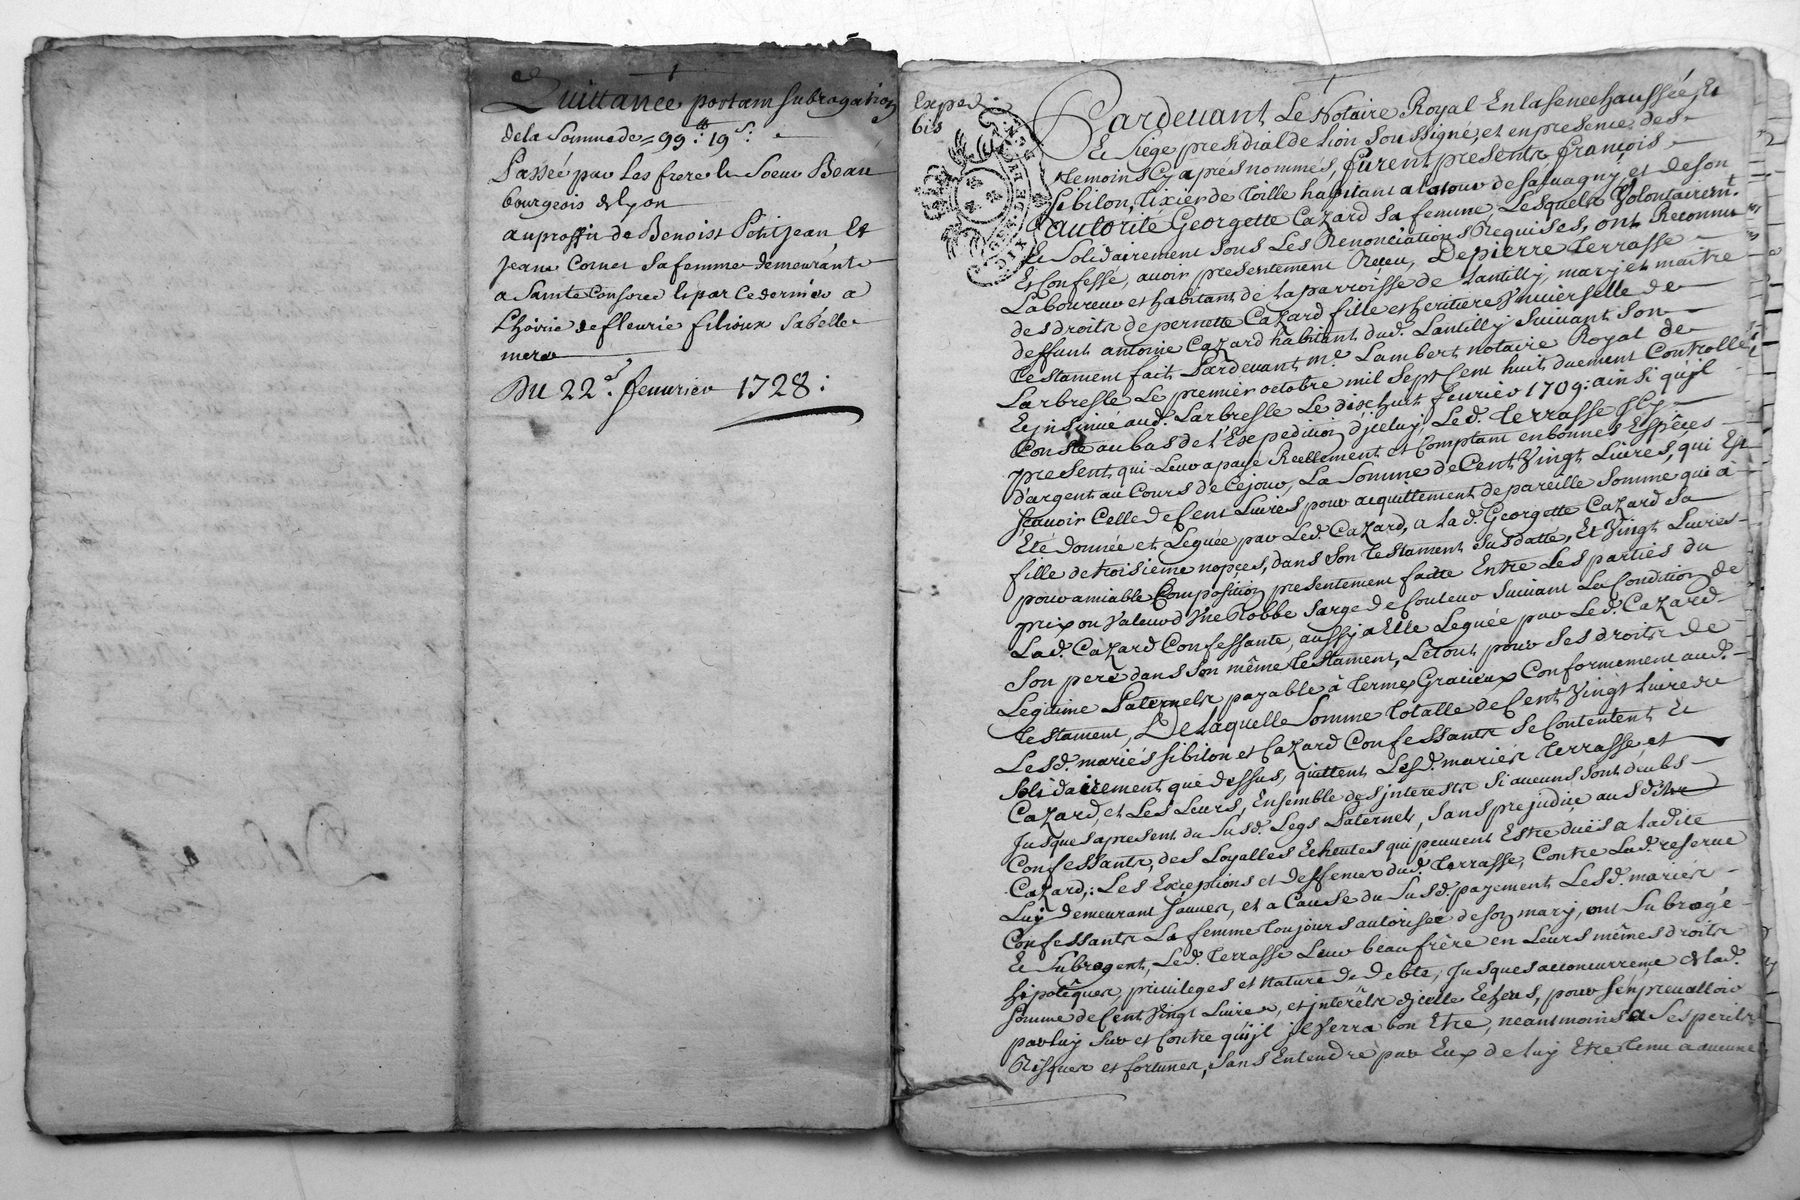 Quittance portant subrogation
de la Somme de = 99.tt 19 s.
Passée par Les frere & Soeur Beau
bourgeois de lyon
au proffit de Benoist Petitjean, Et
Jeane Cornet sa femme demeurants
a Sainte Consorce Et par Ce dernier a
L'hoirie de fleurie filioux sa belle
mere
Du 22e. feuurier 1728 :
Exped.
bis
Pardevant Le Notaire Royal En la seneehaussée, Et
Siege presidial de Lion soussigné, et en presence des
temoins Cy aprés nommés, furent presents françois
sibilon, tixier de toille habitant a la tour de saluagny, et de son
autorité Georgette Cazard sa femme, Lesquels Volontairemt.
Et Solidairement sous Les Renonciations Requises, ont Reconnu
Et Confessé, auoir presentement Receu, De pierre terrasse
Laboureur et habitant de la parroisse de Lantilly, mary et maitre
des droits de pernette Cazard fille et heritiere Vniuerselle de
deffunt antoine Cazard habitant dud. Lantilly suiuant son
testament fait Pardeuant me. Lambert notaire Royal de
Larbresle Le premier octobre mil sept Cent huit duement Controllé
Et jnsinué aud. Larbresle Le dixhuit feurier 1709: ainsi qu'jl
Conste au bas de l'Expedition d'jceluy, Led. terrasse jcy
present qui Leur a payé Reellement et Comptant en bonnes Espêces
d'argent au Cours de Cejour, La Somme de Cent Vingt Liures, qui Est
sçauoir Celle de Cent Liures pour acquittement de pareille somme qui a
Eté donnée et Leguée par Led. Cazard, a lad. Georgette Cazard sa
fille de troisieme nopces, dans son testament susdatté, Et Vingt Liures
pour amiable Composition presentement faitte Entre Les parties du
prix ou Valeur d'Vne Robbe sarge de Couleur suiuant La Condition de
Lad. Cazard Confessante, aussy a Elle Leguée par Led. Cazard
son pere dans son même testament, Le tout pour ses droits de
Legitime Paternels payable à termes Gracieux Conformement aud.
testament, De Laquelle Somme totalle de Cent Vingt Liures
Lesd. mariés sibilon et Cazard Confessants se Contentent Et
solidairement que dessus, quittent Lesd. mariés terrasse, et
Cazard, et Les Leurs, Ensemble des jnterests si aucuns sont deubs
Jusques a present du susd. Legs Paternel, sans prejudice ausdits
Confessants, des Loyalles Echeutes qui peuuent Estre dües a ladite
Cazard,: Les Exceptions et deffences dud. terrasse, Contre Lad. reserue
Luy demeurant sauues, et a Cause du susd. payement Lesd. mariés
Confessants La femme toujours autorisée de son mary, ont subrogé
Et subrogent, Led. terrasse Leur beau frère en Leurs mêmes droits
hipotêques, priuileges et Nature de debte, jusques a concurrence de lad.
somme de Cent Vingt Liures, et jnterêts d'jcelle Echeus, pour s'en preualloir
par luy sur et Contre qu'jl jl Verra bon Etre, neantmoins a ses perils
Risques et fortunes, sans Entendre par Eux de luy Etre tenu a aucune